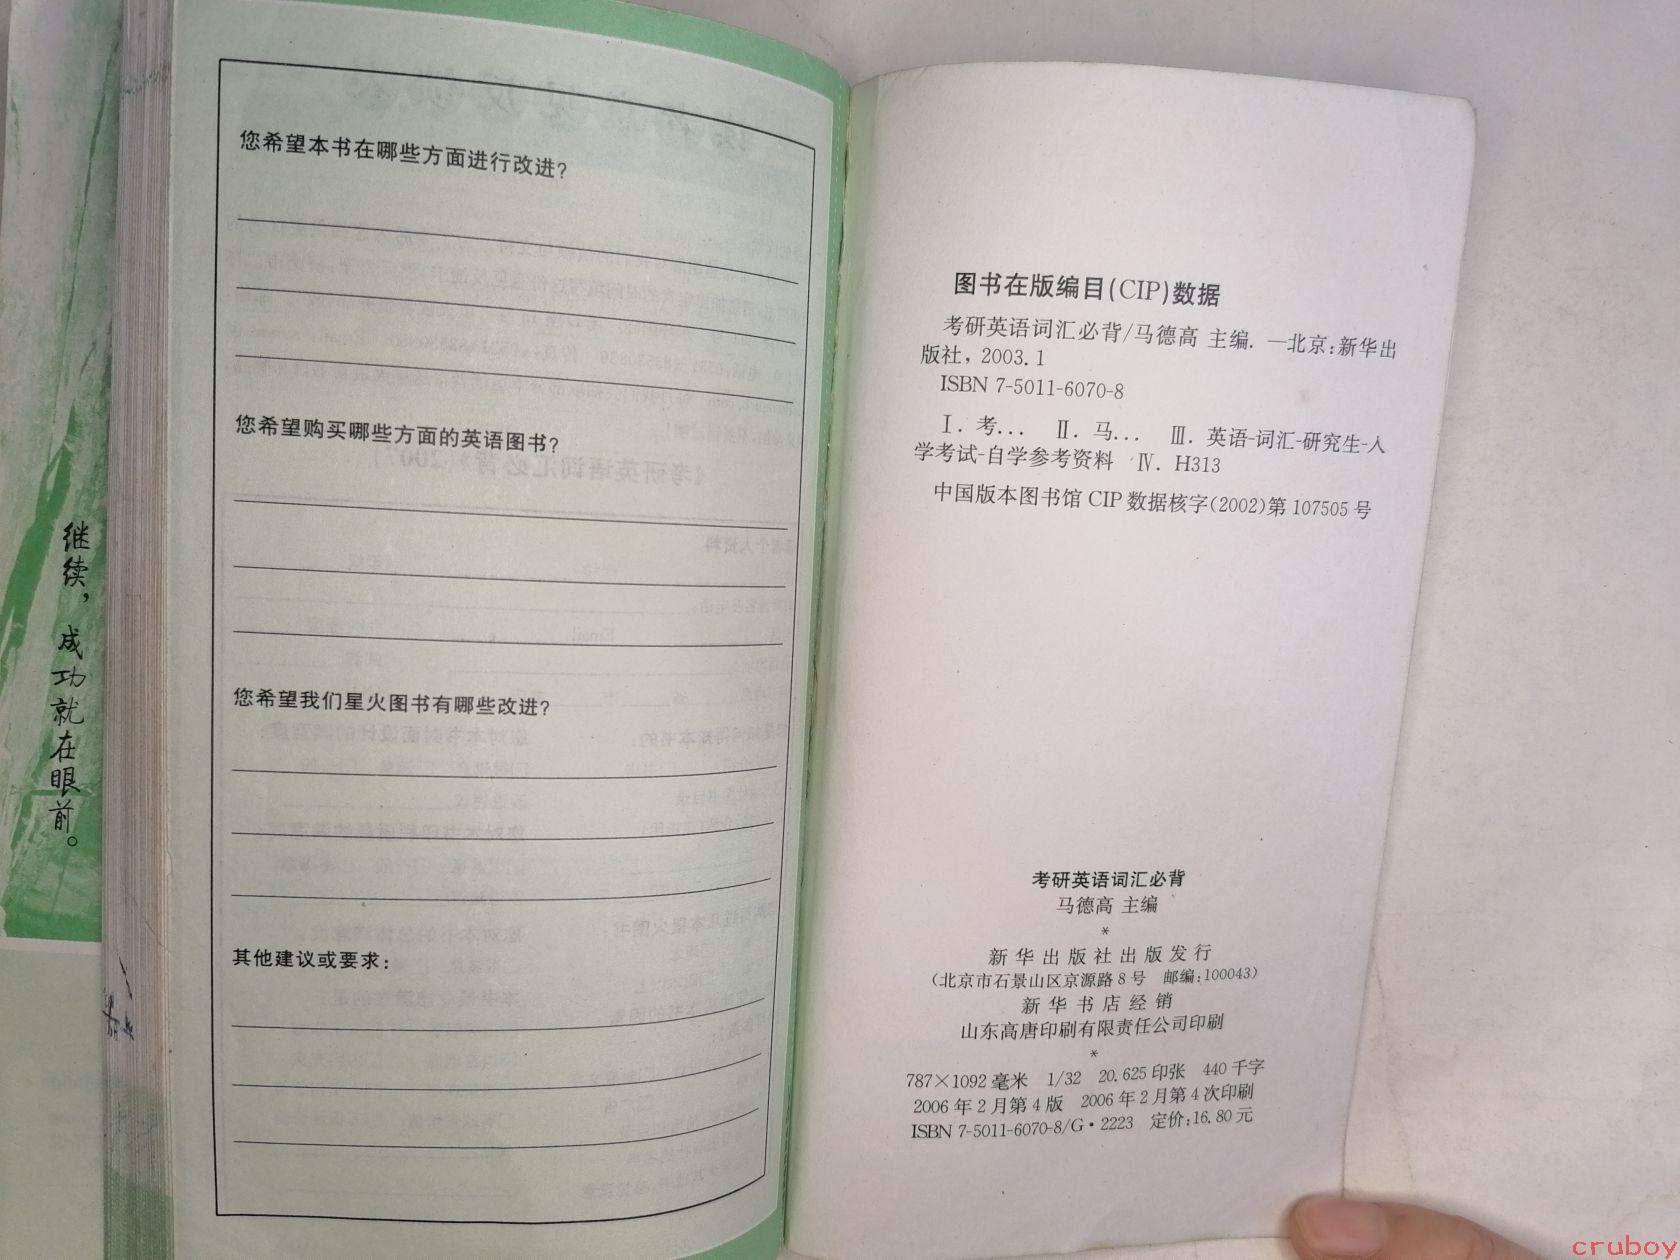 继续，成功就在眼前。
您希望本书在哪些方面进行改进?
您希望购买哪些方面的英语图书?
您希望我们星火图书有哪些改进?
其他建议或要求:
图书在版编目(CIP)数据
考研英语词汇必背/马德高 主编. —北京:新华出
版社, 2003.1
ISBN 7-5011-6070-8
Ⅰ. 考... Ⅱ. 马... Ⅲ. 英语-词汇-研究生-入
学考试-自学参考资料 Ⅳ. H313
中国版本图书馆 CIP 数据核字(2002)第 107505 号
考研英语词汇必背
马德高 主编
*
新华出版社出版发行
(北京市石景山区京源路 8 号 邮编:100043)
新华书店经销
山东高唐印刷有限责任公司印刷
*
787×1092 毫米 1/32 20.625 印张 440 千字
2006 年 2 月第 4 版 2006 年 2 月第 4 次印刷
ISBN 7-5011-6070-8/G·2223 定价:16.80 元
cruboy